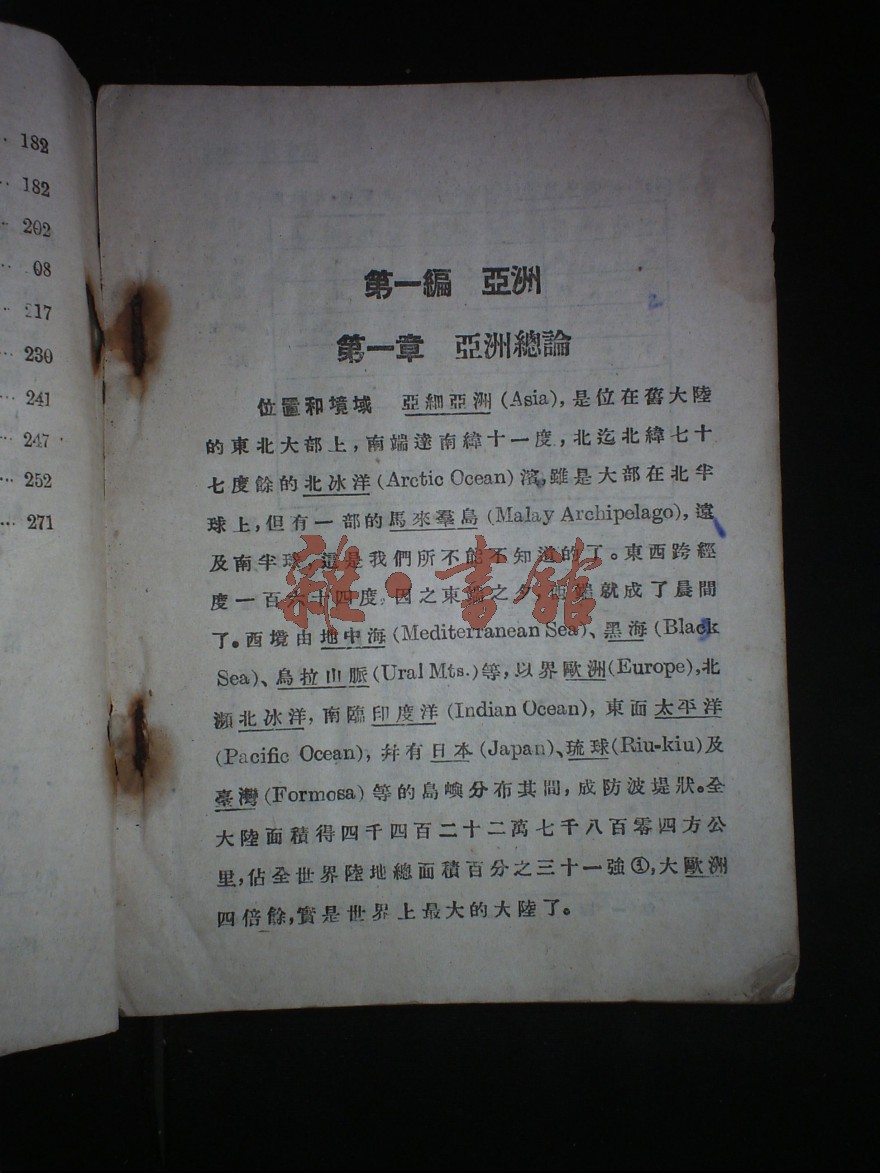 182
182
202
08
217
230
241
247
252
271
第一編 亞洲
第一章 亞洲總論
位置和境域 亞細亞洲 (Asia), 是位在舊大陸
的東北大部上, 南端達南緯十一度, 北迄北緯七十
七度餘的北冰洋 (Arctic Ocean) 濱, 雖是大部在北半
球上, 但有一部的馬來羣島 (Malay Archipelago), 遠
及南半球, 這是我們所不能不知道的了。東西跨經
度一百六十四度, 因之東端之夕, 西端就成了晨間
了。西境由地中海 (Mediterranean Sea)、黑海 (Black
Sea)、烏拉山脈 (Ural Mts.) 等, 以界歐洲 (Europe), 北
瀕北冰洋, 南臨印度洋 (Indian Ocean), 東面太平洋
(Pacific Ocean), 幷有日本 (Japan)、琉球 (Riu-kiu) 及
臺灣 (Formosa) 等的島嶼分布其間, 成防波堤狀。全
大陸面積得四千四百二十二萬七千八百零四方公
里, 佔全世界陸地總面積百分之三十一強①, 大歐洲
四倍餘, 實是世界上最大的大陸了。
雜·書館